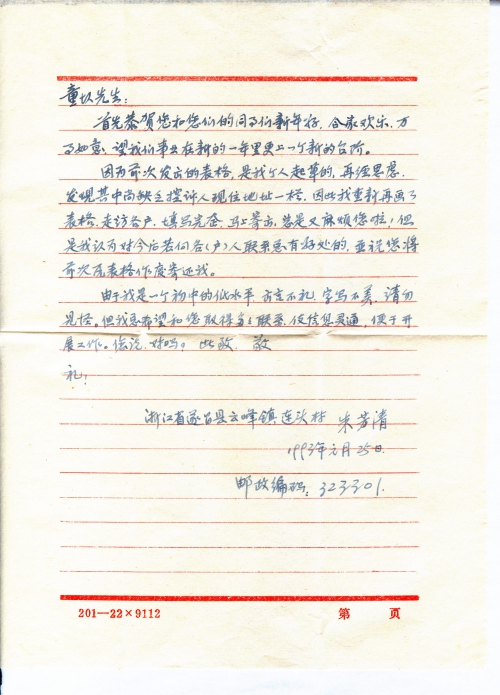 童㘯先生:
首先恭贺您和您们的同事们新年好,合家欢乐,万
事如意,望我们事业在新的一年里更上一个新的台阶。
因为前次发去的表格,是我个人起草的,再经思虑,
发现其中尚缺乏控诉人现住地址一格,因此我重新再画了
表格,走访各户,填写完全,马上寄去,总是又麻烦您啦,但
是我认为对今后若向各(户)人联系总有好处的,并说您将
前次底表格作废寄还我。
由于我是一个初中的低水平,言不礼,字写不美,请勿
见怪。但我总希望和您取得多多联系,使信息灵通,便于开
展工作。您说,好吗?此致,敬
礼!
浙江省遂昌县云峰镇连头村 朱芳清
1993年元月25日
邮政编码:323301.
201—22×9112
第 页